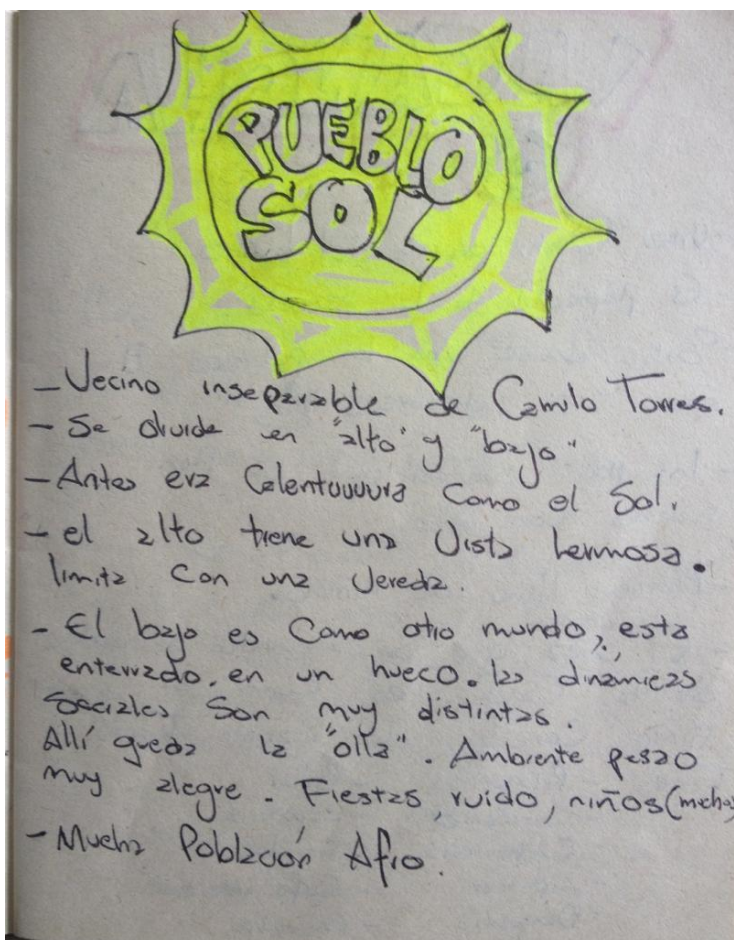 PUEBLO
SOL
- Vecino inseparable de Camilo Torres.
- Se divide en "alto" y "bajo"
- Antes era Calentuuuura Como el Sol.
- el alto tiene una Vista hermosa.
limita Con una Vereda.
- El bajo es Como otro mundo, esta
enterrado. en un hueco. las dinámicas
Sociales Son muy distintas.
Allí queda la "olla". Ambiente
muy alegre - Fiestas, ruido, niños
- Mucha Población Afro.